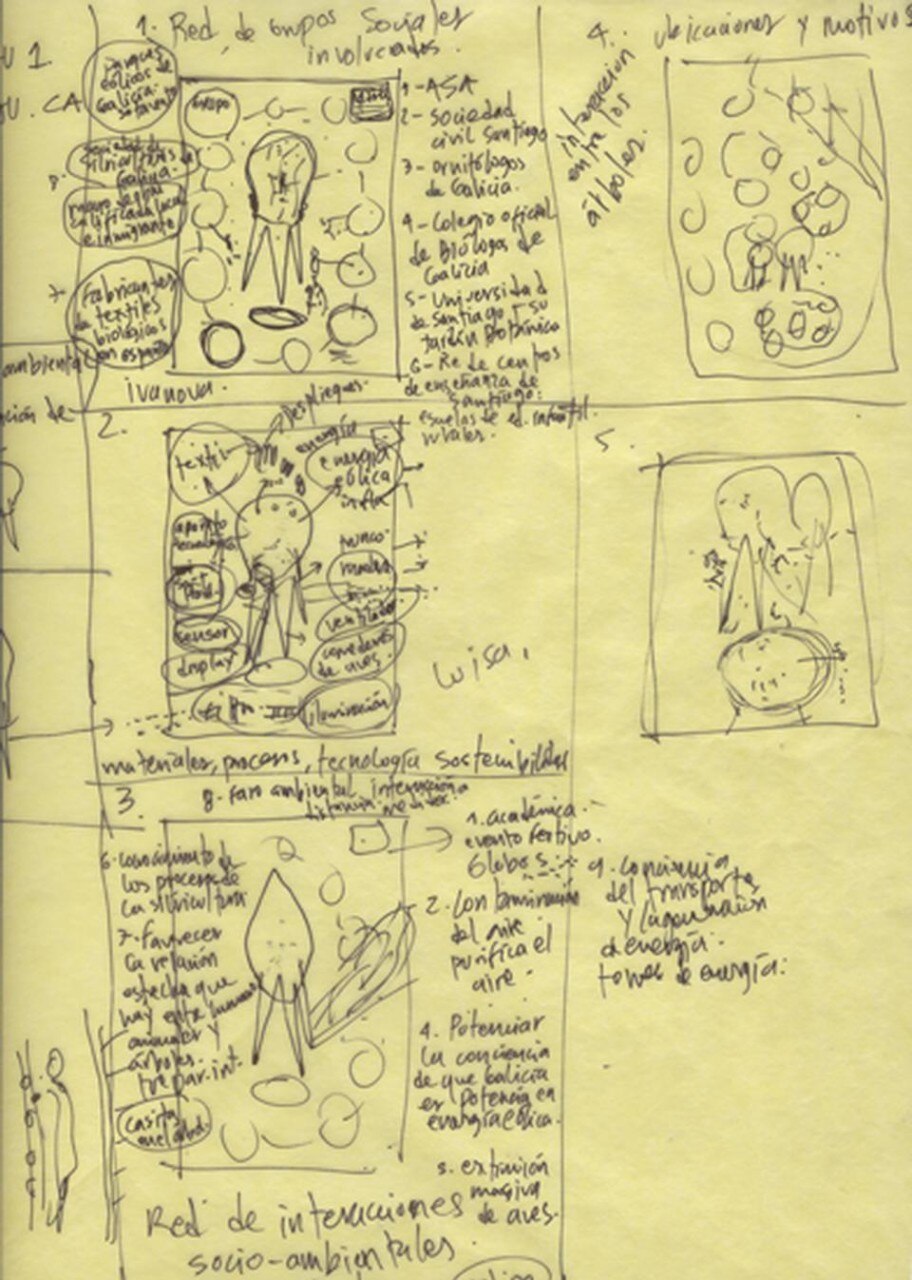 1. Red de Grupos Sociales
involucrados.
4. Ubicaciones y motivos
U 1
U. CA
Parques
eólicos de
Galicia.
Grupo
1 - ASA
2 - sociedad
civil Santiago
3 - ornitólogos
de Galicia.
4 - Colegio oficial
de Biólogos de
Galicia
5 - Universidad
de Santiago - su
Jardín Botánico
6 - Re de centros
de enseñanza de
Santiago:
8.
silvicultores de
Galicia.
calificada local
e inmigrante
7
Fabricantes
de textiles
biológicos
en españa
interacción
entre los
árboles.
ambiente
ción de
ivanova.
2.
Despliegues.
energía
textil
energía
eólica
aparato
sensor
display
ventilador
comederos
de aves.
iluminación
Luisa.
5.
materiales, procesos, tecnología sostenibilidad
3.
8. Faro ambiental interacción a
distancia
1. académica
evento festivo
Globos
6. conocimiento de
los procesos de
la silvicultura
7. Favorecer
la relación
estecha que
hay entre humanos
animales y
árboles.
casita
2. Contaminación
del aire
purifica el
aire.
9. conciencia
del transporte
y la generación
de energía.
torres de energía.
4. Potenciar
la conciencia
de que Galicia
es potencia en
energía eólica.
5. extinción
masiva
de aves.
Red de interacciones
socio-ambientales.